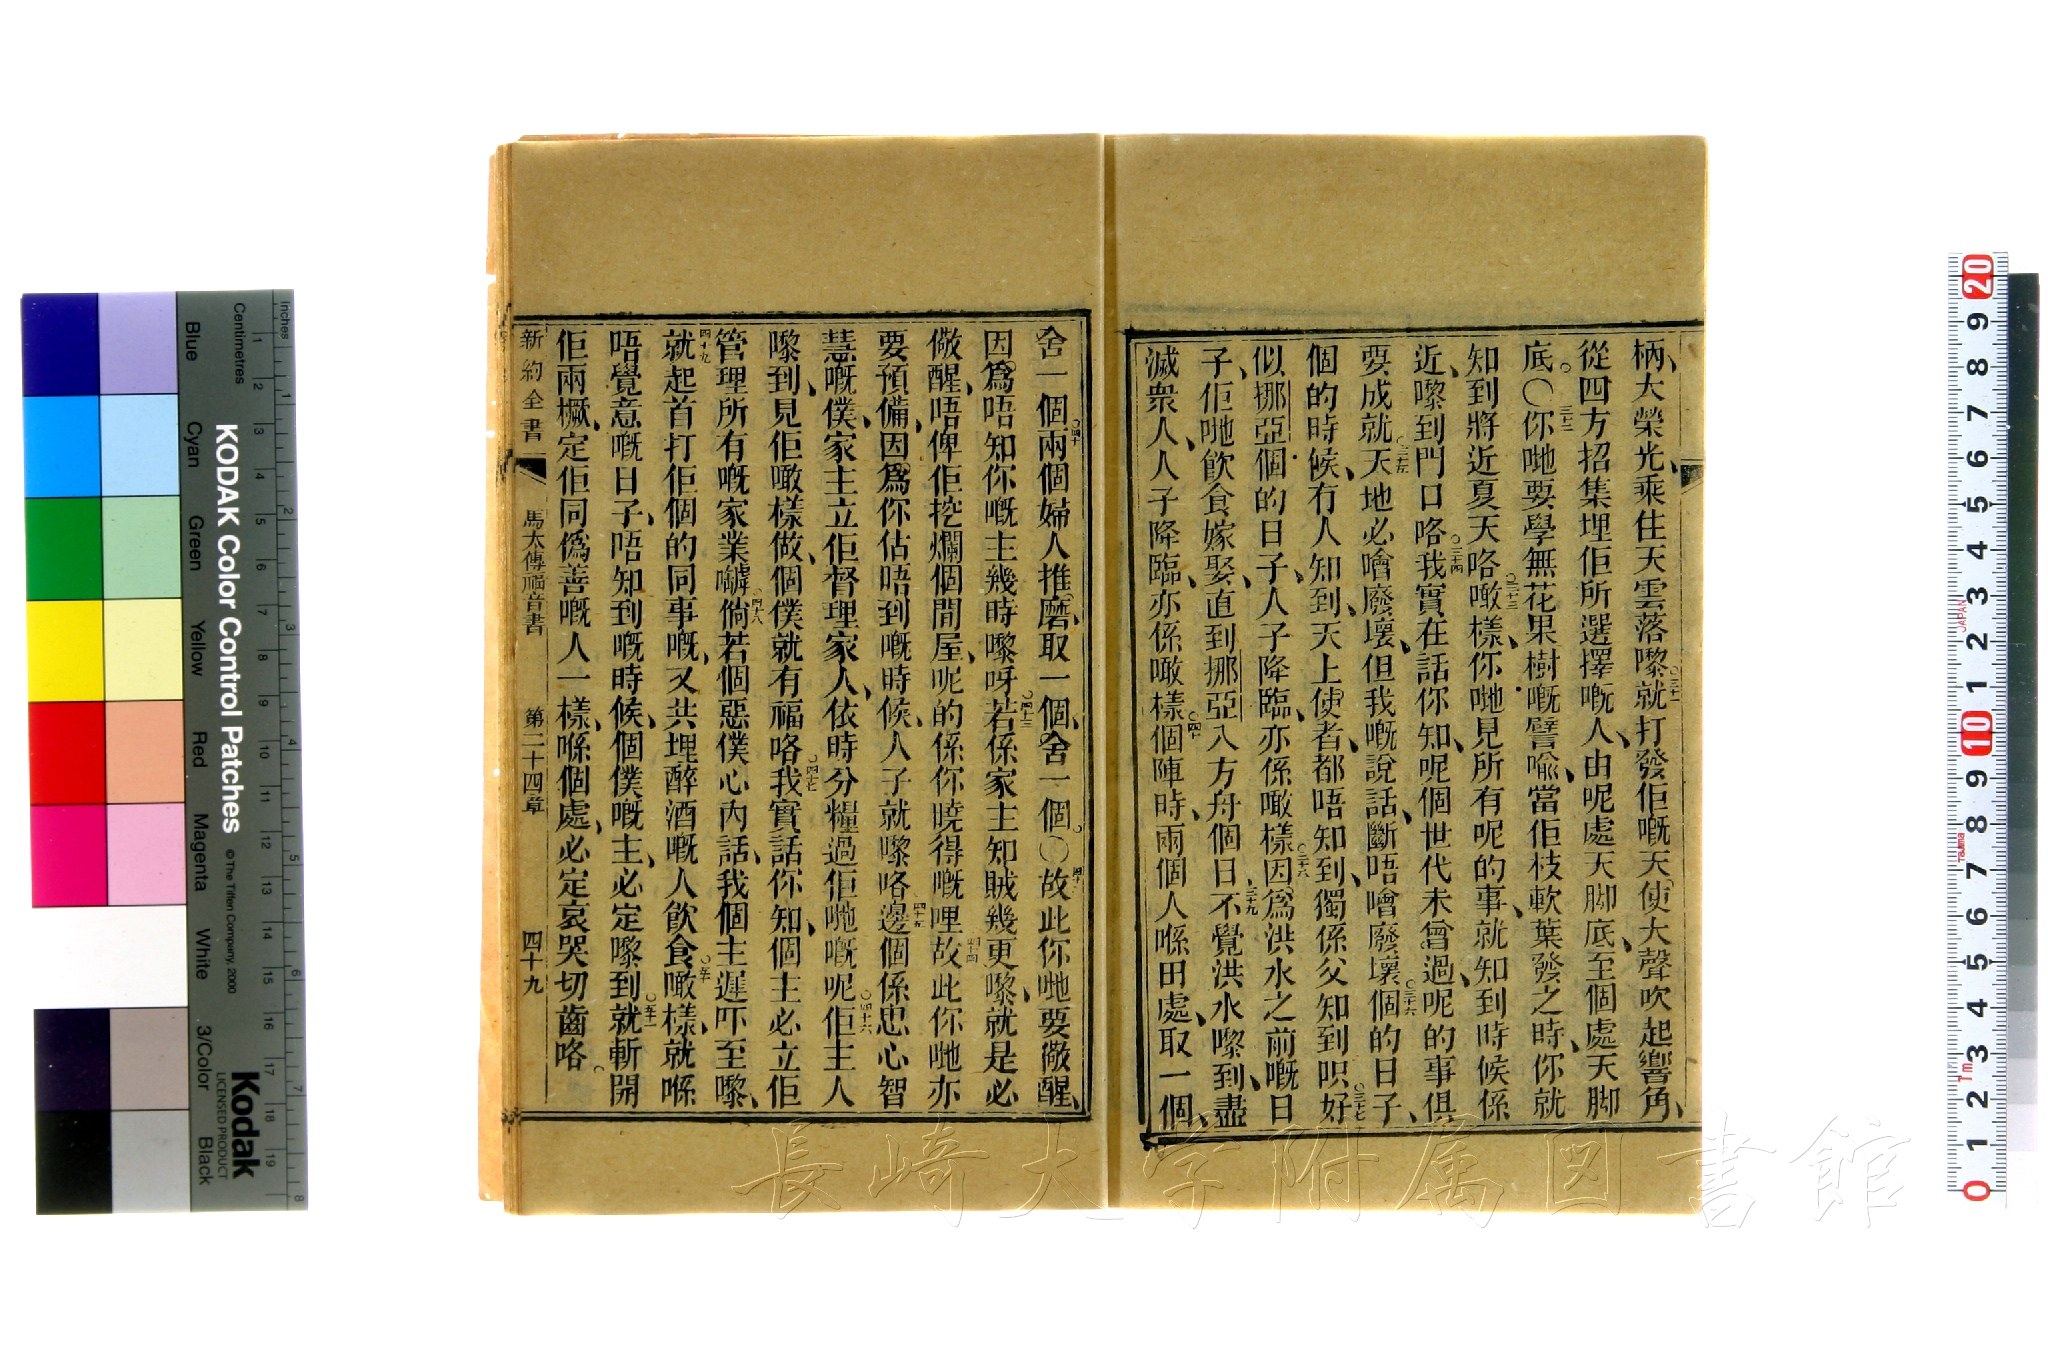 柄、大榮光、乘住天雲落嚟、○三十一就打發佢嘅天使、大聲吹起響角、
從四方招集埋佢所選擇嘅人、由呢處天脚底、至個處天脚
底。○三十二你哋要學無花果樹嘅譬喻、當佢枝軟葉發之時、你就
知到將近夏天咯、○三十三噉樣、你哋見所有呢的事、就知到時候係
近、嚟到門口咯、○三十四我實在話你知、呢個世代未曾過、呢的事俱
要成就、○三十五天地必噲廢壞、但我嘅說話、斷唔噲廢壞、○三十六個的日子、
個的時候、冇人知到、天上使者、都唔知到、獨係父知到呮、○三十七好
似挪亞個的日子、人子降臨、亦係噉樣、○三十八因爲洪水之前嘅日
子、佢哋飲食嫁娶、直到挪亞入方舟個日、○三十九不覺洪水嚟到、盡
滅衆人、人子降臨、亦係噉樣、○四十個陣時、兩個人喺田處、取一個、
舍一個、○四十一兩個婦人推磨、取一個、舍一個。○四十二故此你哋要儆醒、
因爲唔知你嘅主幾時嚟呀、○四十三若係家主知賊幾更嚟、就是必
儆醒、唔俾佢挖爛個間屋、呢的係你曉得嘅哩、○四十四故此你哋亦
要預備、因爲你估唔到嘅時候、人子就嚟咯、○四十五邊個係忠心智
慧嘅僕、家主立佢督理家人、依時分糧過佢哋嘅呢、○四十六佢主人
嚟到、見佢噉樣做、個僕就有福咯、○四十七我實話你知、個主必立佢
管理所有嘅家業嚹、○四十八倘若個惡僕心內話、我個主遲吓至嚟、
○四十九就起首打佢個的同事嘅、又共埋醉酒嘅人飲食、○五十噉樣、就喺
唔覺意嘅日子、唔知到嘅時候、個僕嘅主、必定嚟到、○五十一就斬開
佢兩橛、定佢同僞善嘅人一樣、喺個處、必定哀哭切齒咯。
新約全書 馬太傳福音書 第二十四章 四十九
Inches
Centimetres
KODAK Color Control Patches
© The Tiffen Company, 2000
Kodak
LICENSED PRODUCT
Blue
Cyan
Green
Yellow
Red
Magenta
White
3/Color
Black
長崎大学附属図書館
JAPAN
Tajima